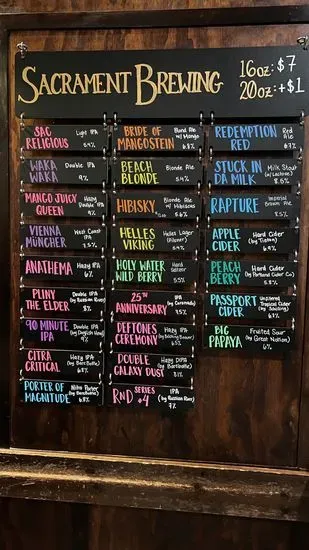 SACRAMENT BREWING
16oz: $7
20oz: +$1
SAC RELIGIOUS
Light IPA
WAKA WAKA
Double IPA
9%
MANGO JUICY QUEEN
Hazy Double IPA
9%
VIENNA MÜNCHER
West Coast IPA
7.5%
ANATHEMA
Hazy IPA
6%
PLINY THE ELDER
Double IPA
(by Russian River)
8%
90 MINUTE IPA
Double IPA
9%
CITRA CRITICAL
Hazy IPA
PORTER OF MAGNITUDE
Nitro Porter
BRIDE OF MANGOSTEIN
Blond Ale
w/ Mango
BEACH BLONDE
Blonde Ale
HIBISKY
Blonde Ale
w/ Hibiscus
5.6%
HELLES VIKING
Helles Lager
(Pilsner)
HOLY WATER WILD BERRY
Hard Seltzer
25TH ANNIVERSARY
IPA
DEFTONES CEREMONY
Hazy IPA
DOUBLE GALAXY DUST
Hazy DIPA
RND SERIES #4
IPA
(by Russian River)
7%
REDEMPTION RED
Red Ale
6.7%
STUCK IN DA MILK
Milk Stout
(w/ Lactose)
RAPTURE
Imperial Brown Ale
8.5%
APPLE CIDER
Hard Cider
6.9%
PEACH BERRY
Hard Cider
(by Portland Cider Co.)
PASSPORT CIDER
Cider
BIG PAPAYA
Fruited Sour
(by Great Notion)
6%